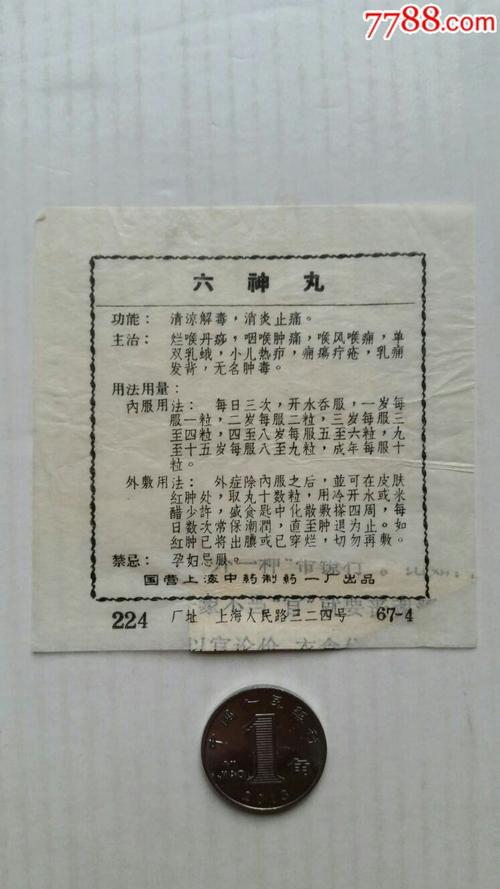 7788.com
六神丸
功能： 清涼解毒，消炎止痛。
主治： 烂喉丹痧，咽喉肿痛，喉风喉痈，单
双乳蛾，小儿热疖，痈瘍疔疮，乳痈
发背，无名肿毒。
用法用量：
內服用法： 每日三次，开水吞服，一岁每
服一粒，二岁每服二粒，三岁每服三
至四粒，四至八岁每服五至六粒，九
至十五岁每服八至九粒，成年每服十
粒。
外敷用法： 外症除內服之后，並可在皮肤
红肿处，取丸十数粒，用冷开水或米
醋少許，盛食匙中化散敷搽四周，每
日数次常保潮潤，直至肿退为止。如
红肿已将出膿或已穿烂，切勿再敷。
禁忌： 孕妇忌服。
国营上海中药制药一厂出品
224 厂址 上海人民路三二四号 67-4
1
角
YI JIAO
2013